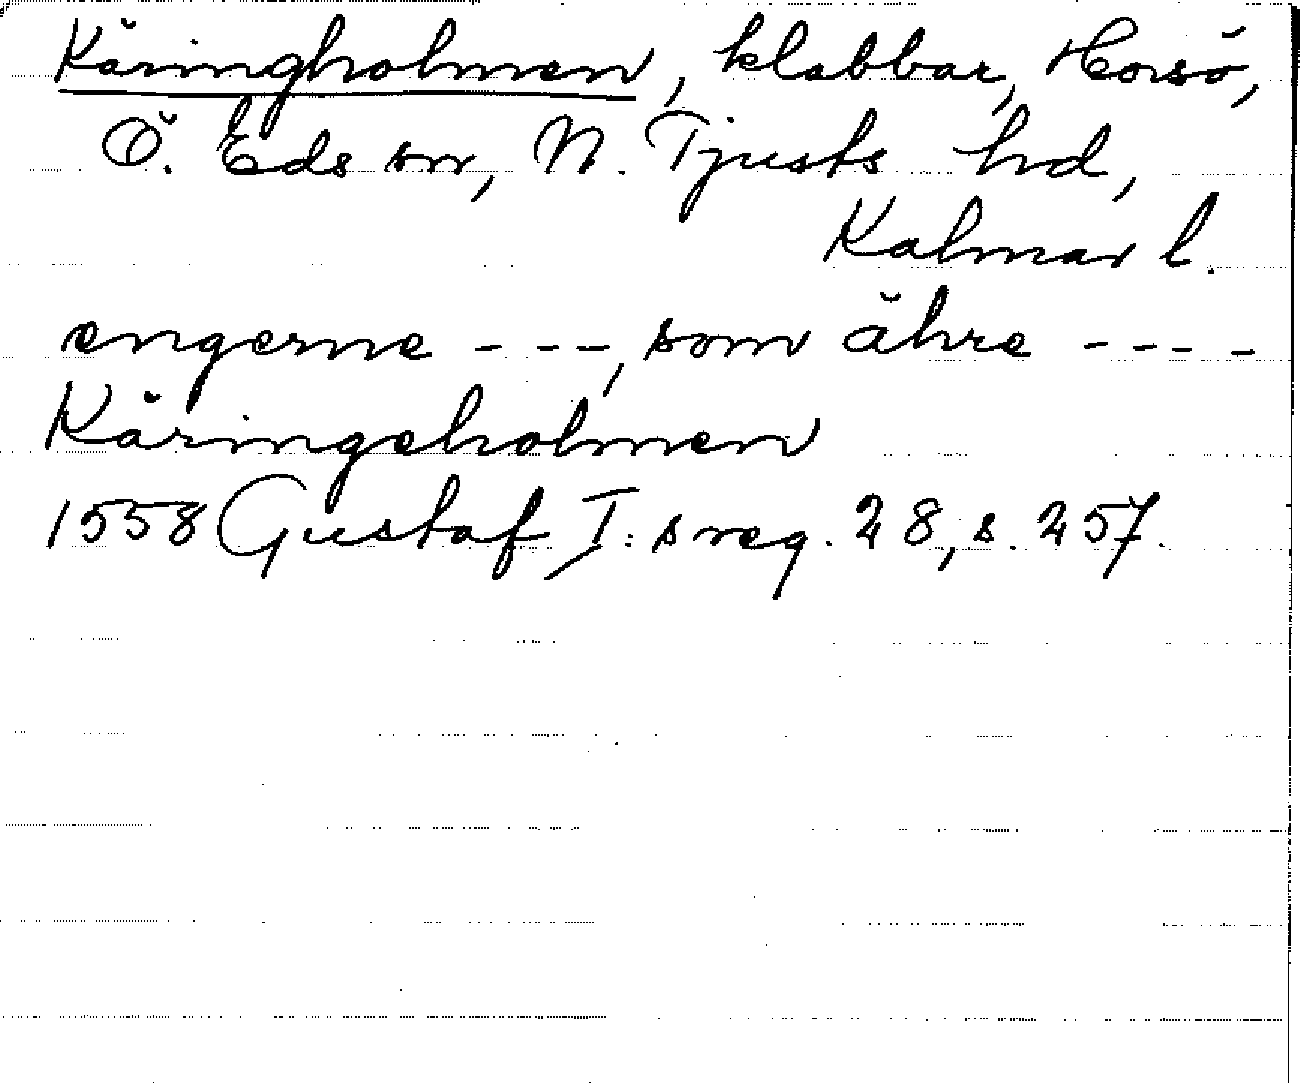 Käringholmen, klabbar, Horsö,
Ö. Eds sn, N. Tjusts hd,
Kalmar l.
engerne - - -, som ähre - - - -
Käringeholmen
1558 Gustaf I:s reg. 28, s. 257.